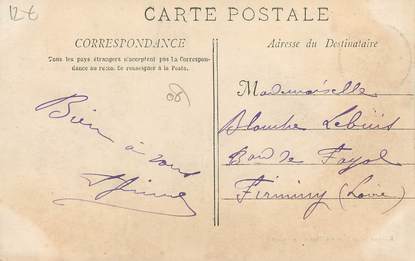 12 €
CARTE POSTALE
CORRESPONDANCE
Tous les pays étrangers n'acceptent pas la Correspon-
dance au recto. Se renseigner à la Poste.
Adresse du Destinataire
Bien
à vous
Mademoiselle
Blanche
de Fayol
Firminy (Loire)